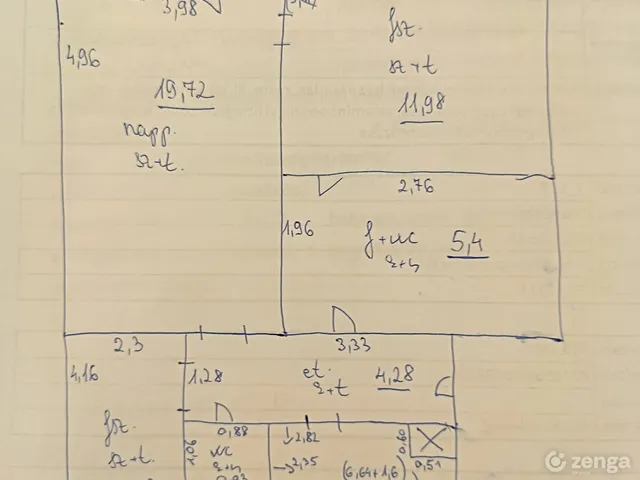 3,98
4,96
19,72
napp.
sz+t.
fsz.
sz+t
11,98
2,76
1,96
f+wc
5,4
2,3
3,33
4,16
1,28
et.
4,28
fsz.
sz+t.
0,88
wc
2,82
2,35
(6,64+1,6)
0,60
0,51
zenga